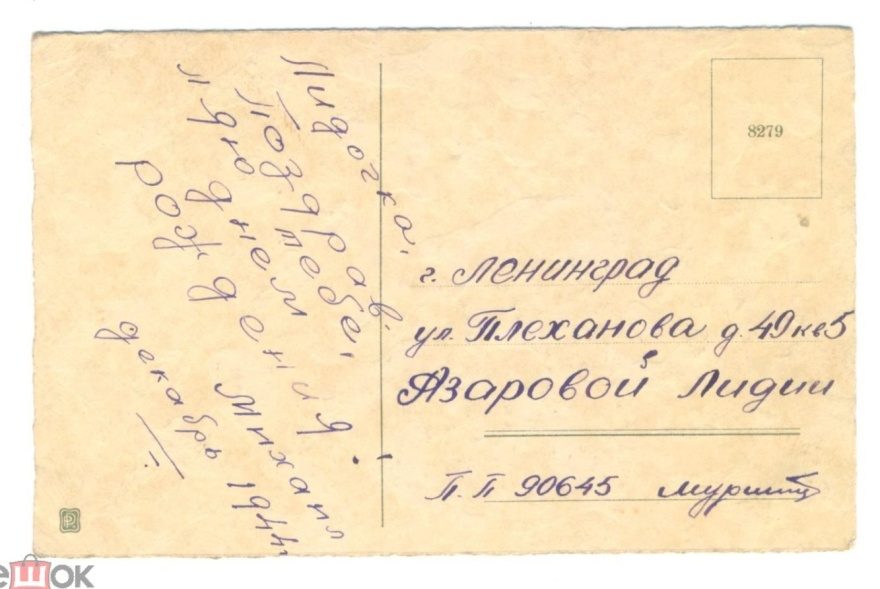 Лидочка,
Поздрав-
ляю тебе,
днем
рождения!
Михаил
декабрь 1944г
8279
г. Ленинград
ул. Плеханова д. 49 кв 5
Азаровой Лидии
П.П 90645
ешок